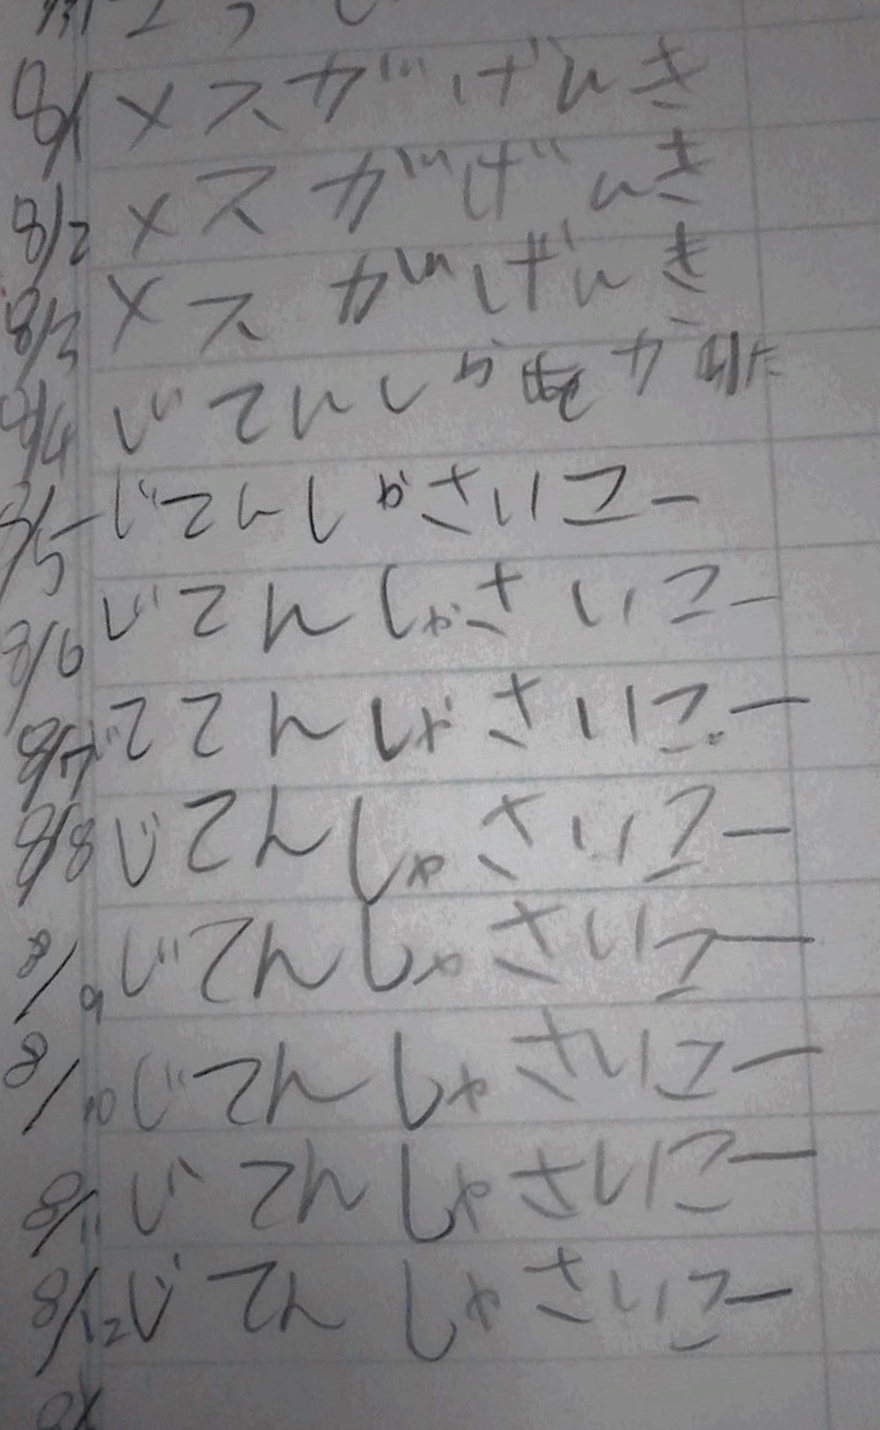 8/1 メスがげんき
8/2 メスがげんき
8/3 メスがげんき
8/4 じてんしゃ
8/5 じてんしゃさいこー
8/6 じてんしゃさいこー
8/7 じてんしゃさいこー
8/8 じてんしゃさいこー
8/9 じてんしゃさいこー
8/10 じてんしゃさいこー
8/11 じてんしゃさいこー
8/12 じてんしゃさいこー